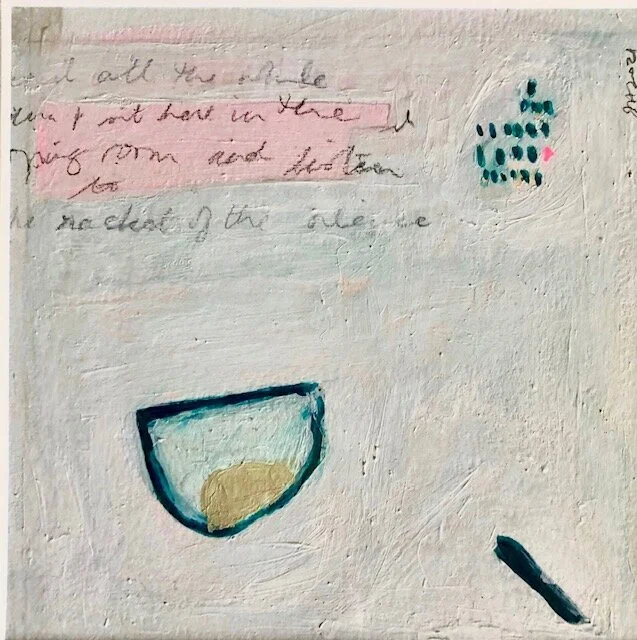 all the while
sit here in the
ying room and listen
to
he racket of the silence